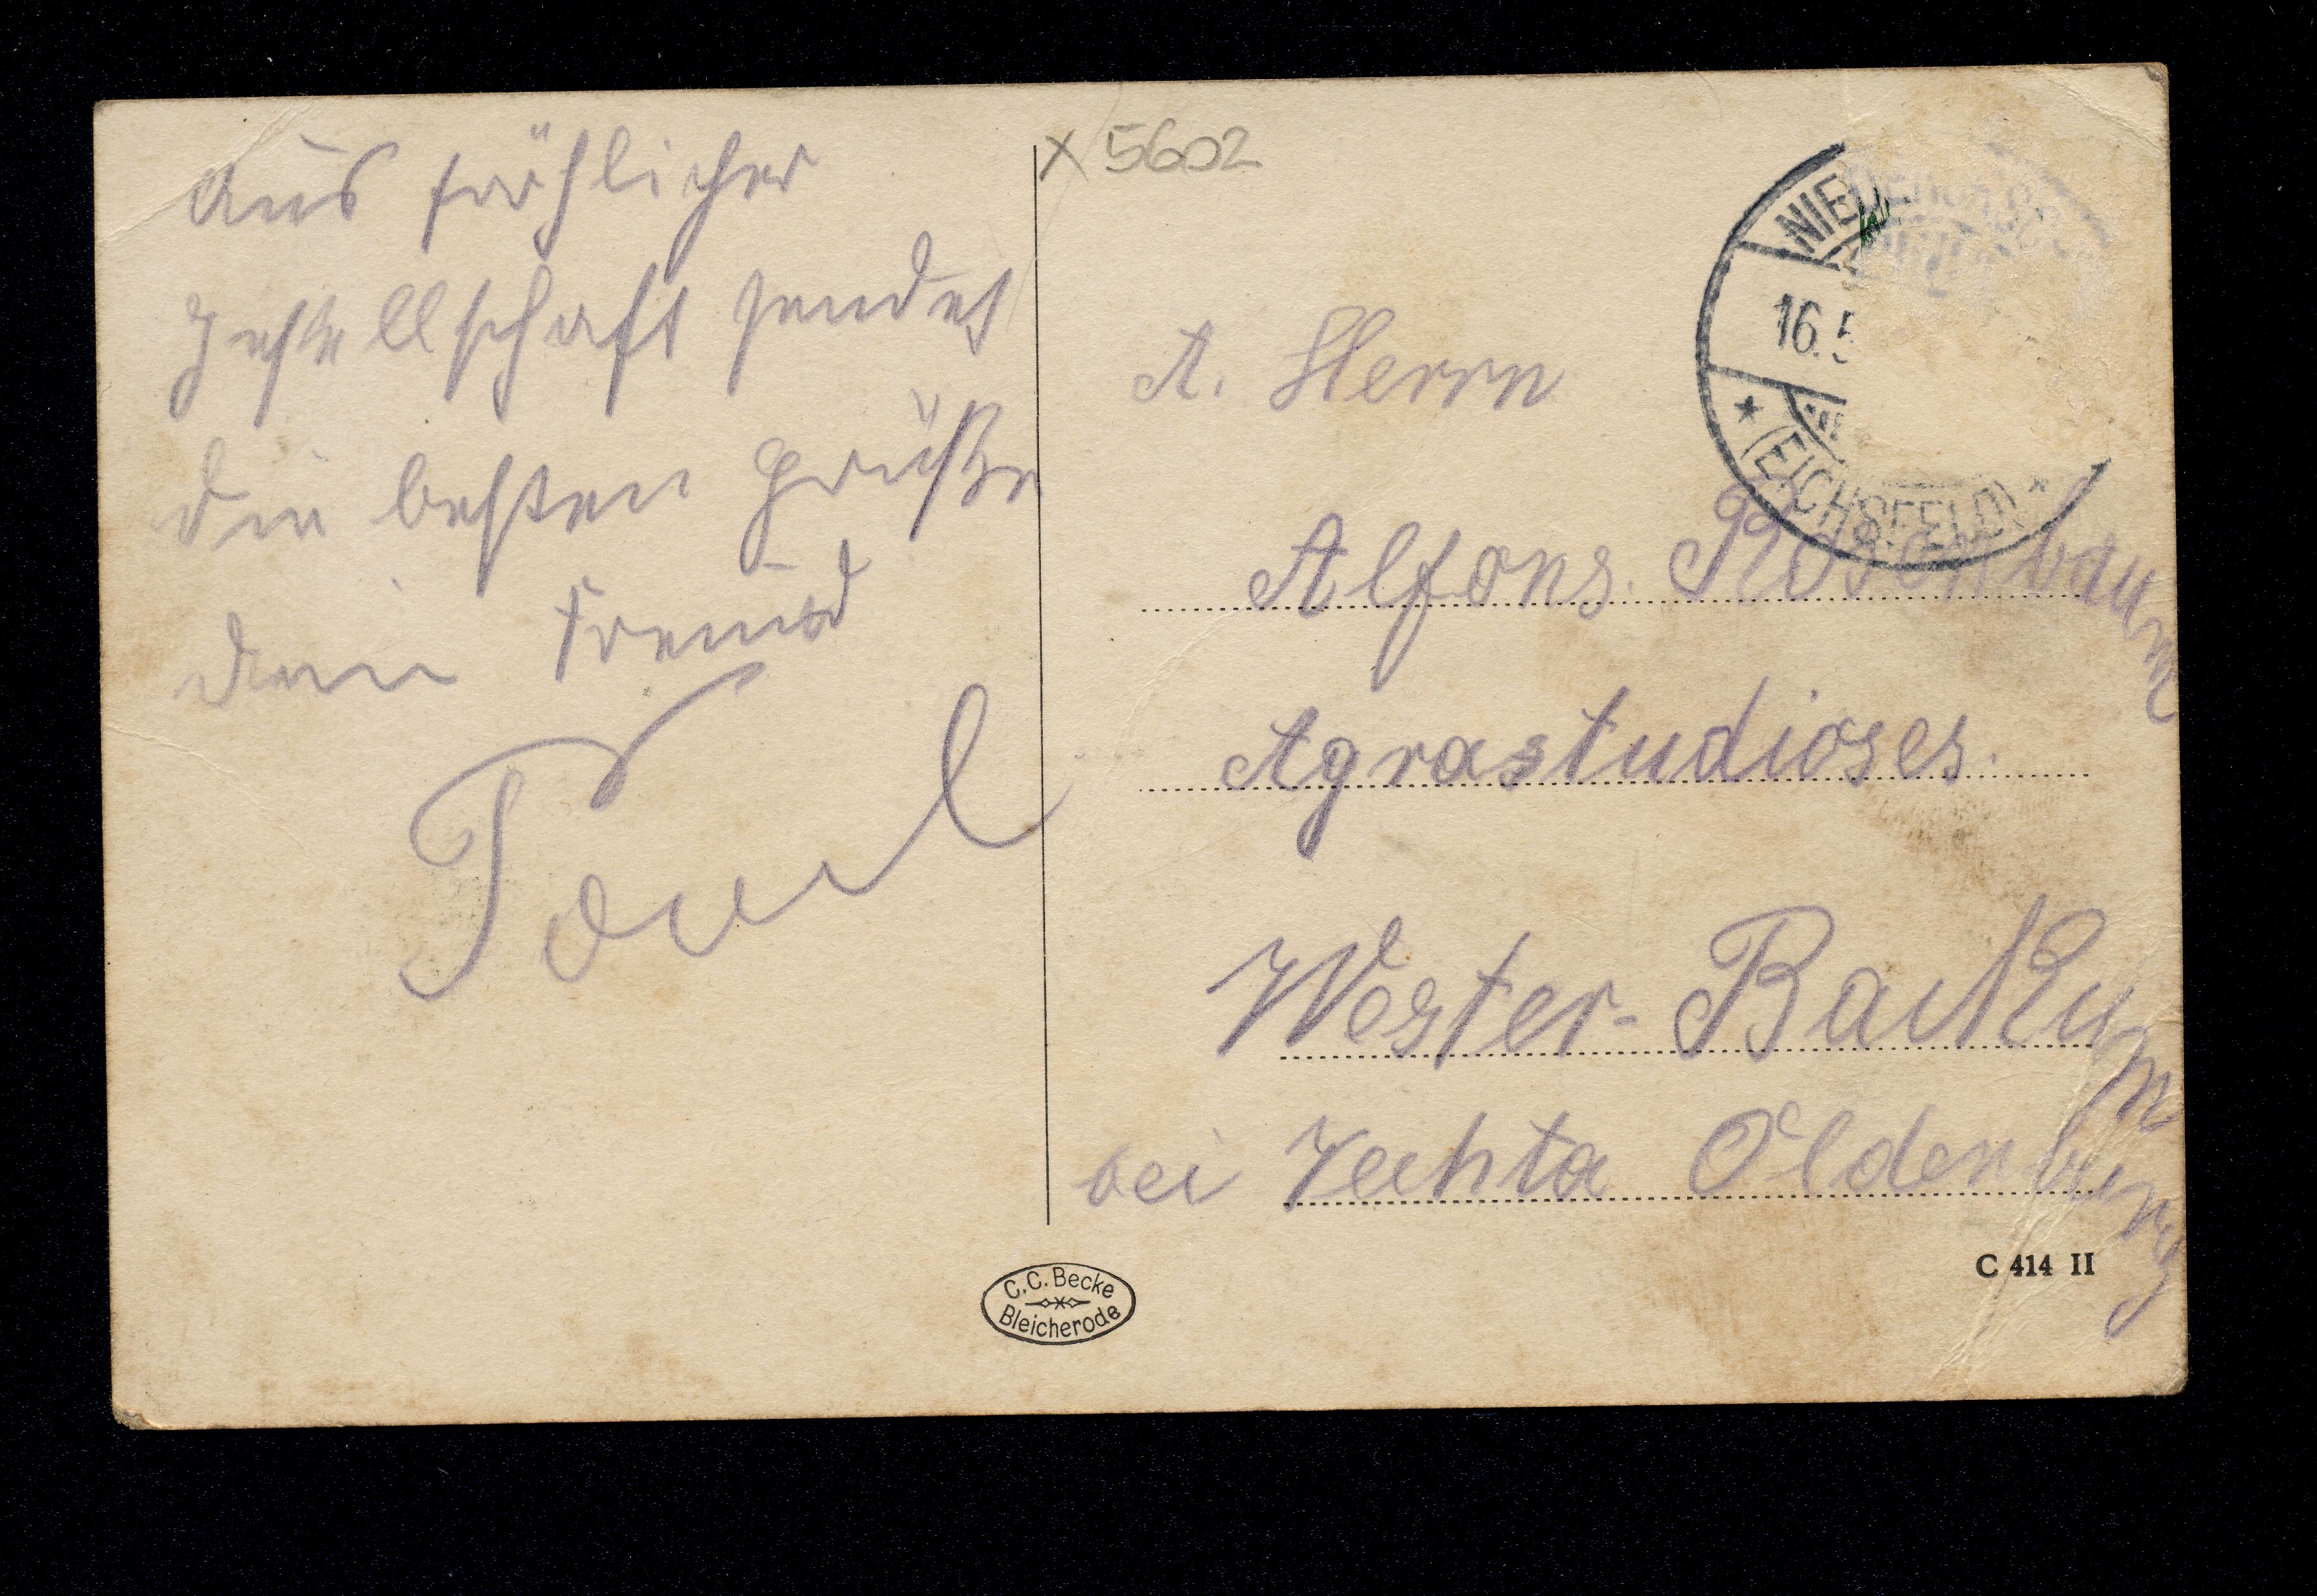 Aus fröhlicher
Gesellschaft sendet
die besten Grüße
dein Freund
Paul
x 5602
A. Herrn
Alfons Rosenbaum
Agrastudioses.
Wester-Backum
bei Vechta Oldenburg
16.5
(EICHSFELD)
C. C. Becke
Bleicherode
C 414 II